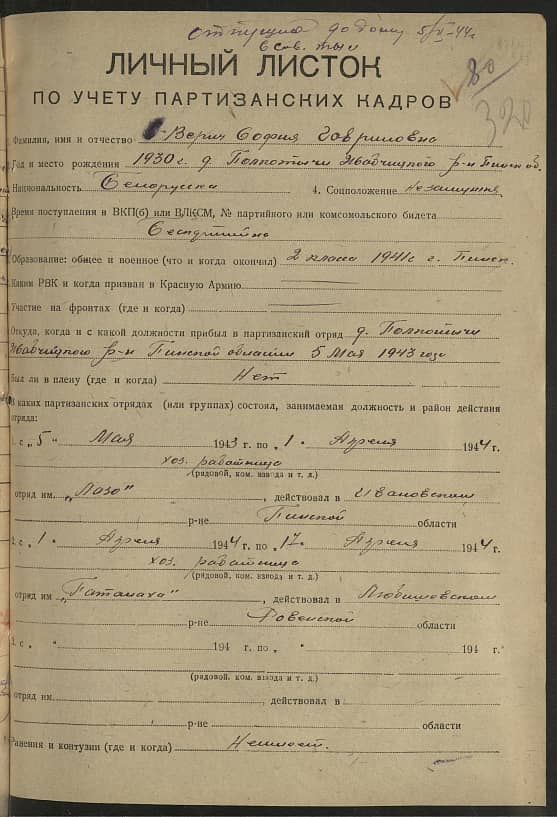 отпущена до дому 5/VI-44г
в сов. тыл
80
320
ЛИЧНЫЙ ЛИСТОК
ПО УЧЕТУ ПАРТИЗАНСКИХ КАДРОВ
Фамилия, имя и отчество Верич София Гавриловна
Год и место рождения 1930 г. д. Полкотичи р-н
Национальность Белоруска 4. Соцположение незамужня
Время поступления в ВКП(б) или ВЛКСМ, № партийного или комсомольского билета
Беспартийна
Образование: общее и военное (что и когда окончил) 2 класса 1941 г. Пинск.
Каким РВК и когда призвана в Красную Армию
Участие на фронтах (где и когда)
Откуда, когда и с какой должности прибыл в партизанский отряд д. Полкотичи
р-н Пинской области 5 Мая 1943 года
Был ли в плену (где и когда) Нет
В каких партизанских отрядах (или группах) состоял, занимаемая должность и район действия
отряда:
1. с „5" Мая 1943 г. по „1" Апреля 1944 г.
хоз. работница
(рядовой, ком. взвода и т. д.)
отряд им. „Лазо", действовал в Ивановском
р-не Пинской области
2. с „1" Апреля 1944 г. по „17" Апреля 1944 г.
хоз. работница
(рядовой, ком. взвода и т. д.)
отряд им „Паталаха", действовал в Любешовском
р-не Ровенской области
3. с „ " 194 г. по „ " 194 г.
(рядовой, ком. взвода и т. д.)
отряд им. , действовал в
р-не области
Ранения и контузии (где и когда)